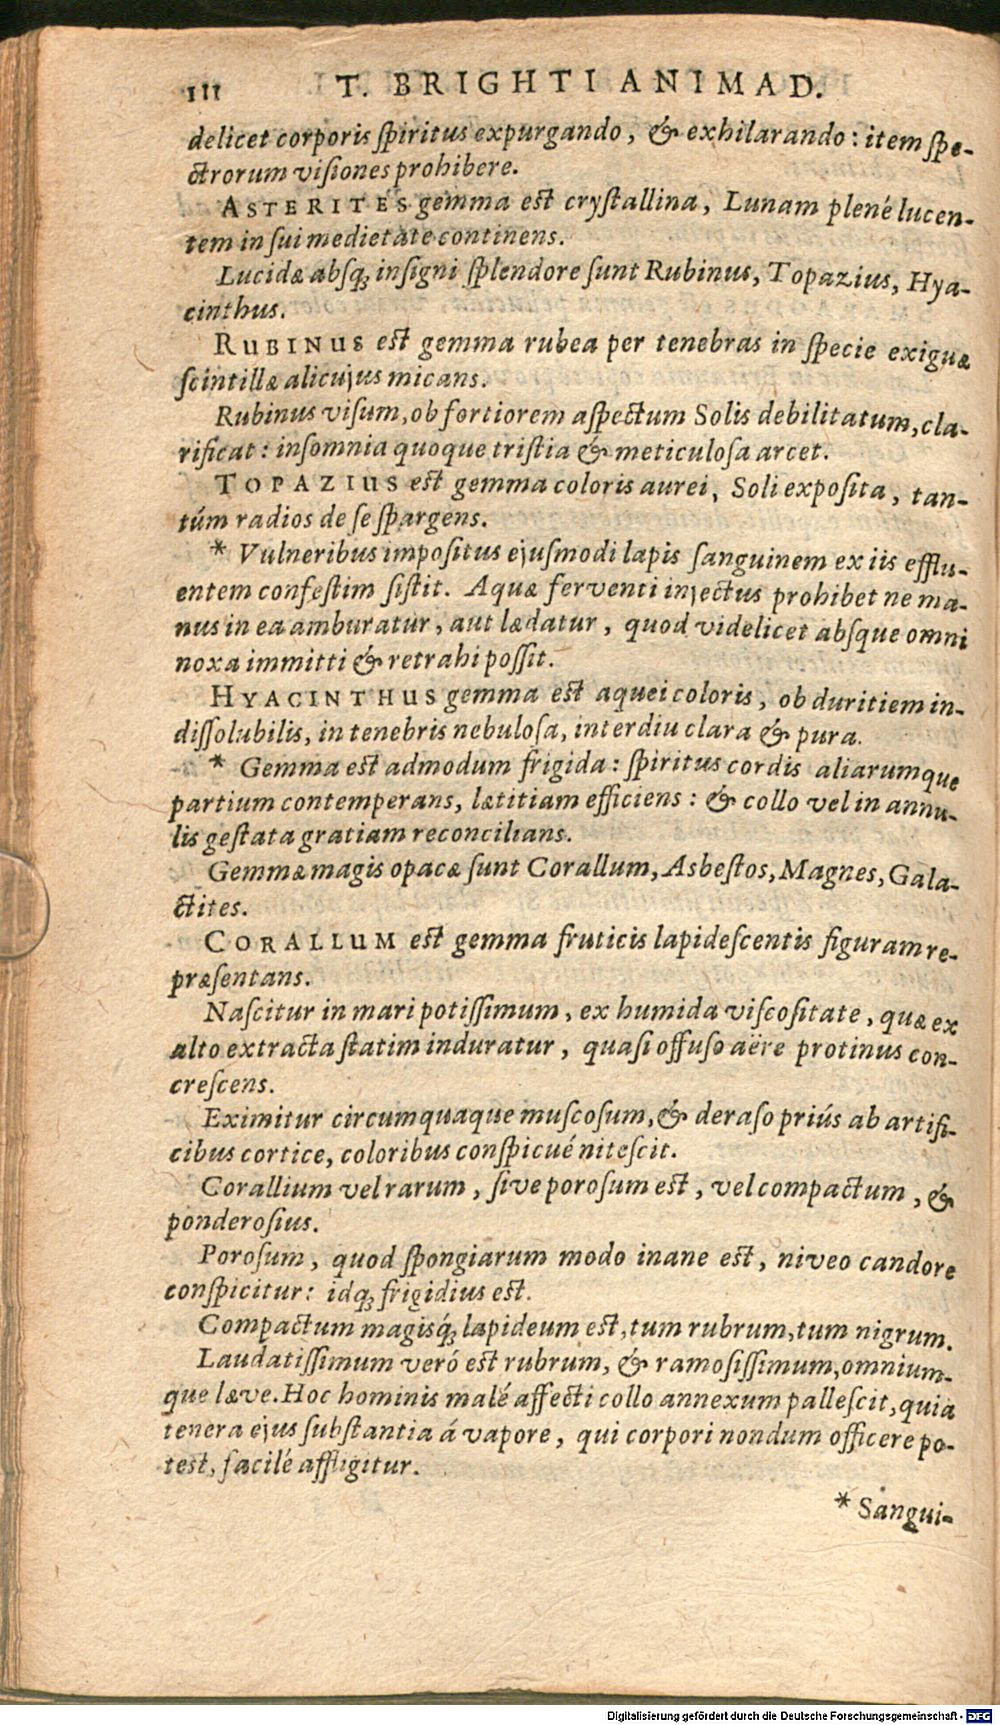 111 T. BRIGHTI ANIMAD.
delicet corporis ſpiritus expurgando, & exhilarando: item ſpe-
ctrorum viſiones prohibere.
ASTERITES gemma eſt cryſtallina, Lunam plené lucen-
tem in ſui medietate continens.
Lucidæ abſq; inſigni ſplendore ſunt Rubinus, Topazius, Hya-
cinthus.
RUBINUS eſt gemma rubea per tenebras in ſpecie exiguæ
ſcintillæ alicujus micans.
Rubinus viſum, ob fortiorem aſpectum Solis debilitatum, cla-
rificat: inſomnia quoque triſtia & meticuloſa arcet.
TOPAZIUS eſt gemma coloris aurei, Soli expoſita, tan-
túm radios de ſe ſpargens.
* Vulneribus impoſitus ejusmodi lapis ſanguinem ex iis efflu-
entem confeſtim ſiſtit. Aquæ ferventi injectus prohibet ne ma-
nus in ea amburatur, aut lædatur, quod videlicet absque omni
noxa immitti & retrahi poſſit.
HYACINTHUS gemma eſt aquei coloris, ob duritiem in-
diſſolubilis, in tenebris nebuloſa, interdiu clara & pura.
* Gemma eſt admodum frigida: ſpiritus cordis aliarumque
partium contemperans, lætitiam efficiens: & collo vel in annu-
lis geſtata gratiam reconcilians.
Gemmæ magis opacæ ſunt Corallum, Asbeſtos, Magnes, Gala-
ctites.
CORALLUM eſt gemma fruticis lapideſcentis figuram re-
præſentans.
Naſcitur in mari potiſſimum, ex humida viſcoſitate, quæ ex
alto extracta ſtatim induratur, quaſi offuſo aëre protinus con-
creſcens.
Eximitur circumquaque muſcoſum, & deraſo priús ab artifi-
cibus cortice, coloribus conſpicué niteſcit.
Corallium vel rarum, ſive poroſum eſt, vel compactum, &
ponderoſius.
Poroſum, quod ſpongiarum modo inane eſt, niveo candore
conſpicitur: idq; frigidius eſt.
Compactum magisq́; lapideum eſt, tum rubrum, tum nigrum.
Laudatiſſimum veró eſt rubrum, & ramoſiſſimum, omnium-
que læve. Hoc hominis malé affecti collo annexum palleſcit, quia
tenera ejus ſubſtantia á vapore, qui corpori nondum officere po-
teſt, facilé affligitur.
* Sangui-
Digitalisierung gefördert durch die Deutsche Forschungsgemeinschaft - DFG